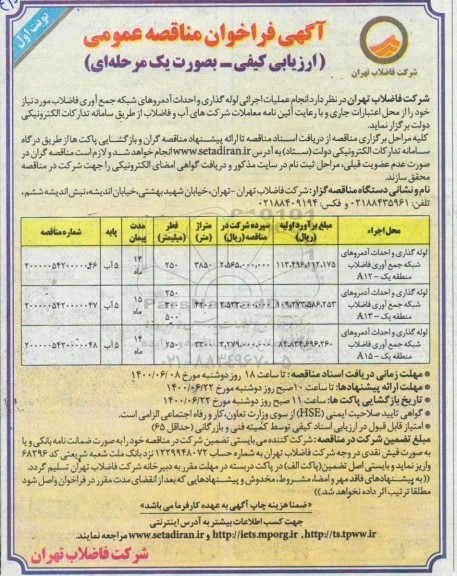 نوبت اول
آگهی فراخوان مناقصه عمومی
(ارزیابی کیفی – بصورت یک مرحله‌ای)
شرکت فاضلاب تهران
شرکت فاضلاب تهران در نظر دارد انجام عملیات اجرائی لوله گذاری و احداث آدمروهای شبکه جمع آوری فاضلاب مورد نیاز
خود را از محل اعتبارات جاری و با رعایت آئین نامه معاملات شرکت های آب و فاضلاب از طریق سامانه تدارکات الکترونیکی
دولت برگزار نماید.
کلیه مراحل برگزاری مناقصه از دریافت اسناد مناقصه تا ارائه پیشنهاد مناقصه گران و بازگشایی پاکت ها از طریق درگاه
سامانه تدارکات الکترونیکی دولت (ستاد) به آدرس www.setadiran.ir انجام خواهد شد و لازم است مناقصه گران در
صورت عدم عضویت قبلی، مراحل ثبت نام در سایت مذکور و دریافت گواهی امضای الکترونیکی را جهت شرکت در مناقصه
محقق سازند.
نام و نشانی دستگاه مناقصه گزار: شرکت فاضلاب تهران -تهران، خیابان شهید بهشتی، خیابان اندیشه، نبش اندیشه ششم،
تلفن: ۰۲۱۸۸۴۳۵۹۶۱ و فکس: ۰۲۱۸۸۴۰۹۱۹۴
محل اجراء مبلغ برآورد اولیه (ریال) سپرده شرکت در مناقصه (ریال) متراژ (متر) قطر (میلیمتر) مدت پیمان پایه شماره مناقصه
لوله گذاری و احداث آدمروهای شبکه جمع آوری فاضلاب منطقه یک – A12 ۲,۵۶۵,۰۰۰,۰۰۰ ۳۸۵۰ ۲۵۰ ۱۴ ماه ۵ آب ۲۰۰۰۰۰۵۴۲۰۰۰۰۰۴۶
لوله گذاری و احداث آدمروهای شبکه جمع آوری فاضلاب منطقه یک – A13 ۱۰۹,۲۷۳,۵۸۶,۲۵۳ ۴۲۰۰ ۵۰۰ ۱۵ ماه ۵ آب ۲۰۰۰۰۰۵۴۲۰۰۰۰۰۴۷
لوله گذاری و احداث آدمروهای شبکه جمع آوری فاضلاب منطقه یک – A15 ۲,۲۷۹,۰۰۰,۰۰۰ ۳۳۰۰ ۲۵۰ ۱۴ ماه ۵ آب ۲۰۰۰۰۰۵۴۲۰۰۰۰۰۴۸
• مهلت زمانی دریافت اسناد مناقصه: تا ساعت ۱۸ روز دوشنبه مورخ ۱۴۰۰/۰۶/۰۸
• مهلت ارائه پیشنهادها: تا ساعت ۱۰ صبح روز دوشنبه مورخ ۱۴۰۰/۰۶/۲۲
• تاریخ بازگشایی پاکت ها: ساعت ۱۱ صبح روز دوشنبه مورخ ۱۴۰۰/۰۶/۲۲
• گواهی تایید صلاحیت ایمنی (HSE) از سوی وزارت تعاون، کار و رفاه اجتماعی الزامی است.
• امتیاز قابل قبول در ارزیابی اسناد کیفی توسط کمیته فنی و بازرگانی (حداقل ۶۵)
مبلغ تضمین شرکت در مناقصه: شرکت کننده می بایستی تضمین شرکت در مناقصه خود را به صورت ضمانت نامه بانکی و یا
به صورت فیش نقدی در وجه شرکت فاضلاب تهران به شماره حساب ۱۲۲۹۹۴۸۰۷۲ نزد بانک ملت شعبه شریعتی کد ۶۸۲۹۶
واریز نماید و بایستی اصل تضمین (پاکت الف) در پاکت دربسته در مهلت مقرر به دبیرخانه شرکت فاضلاب تهران تسلیم گردد.
((به پیشنهادهای فاقد مهر و امضاء، مشروط، مخدوش و پیشنهادهایی که بعد از انقضای مدت مقرر در فراخوان واصل شود
مطلقا ترتیب اثر داده نخواهد شد.))
«ضمنا هزینه چاپ آگهی به عهده کارفرما می باشد»
جهت کسب اطلاعات بیشتر به آدرس اینترنتی
http://ts.tpww.ir، http://iets.mporg.ir و www.setadiran.ir مراجعه نمایند.
شرکت فاضلاب تهران